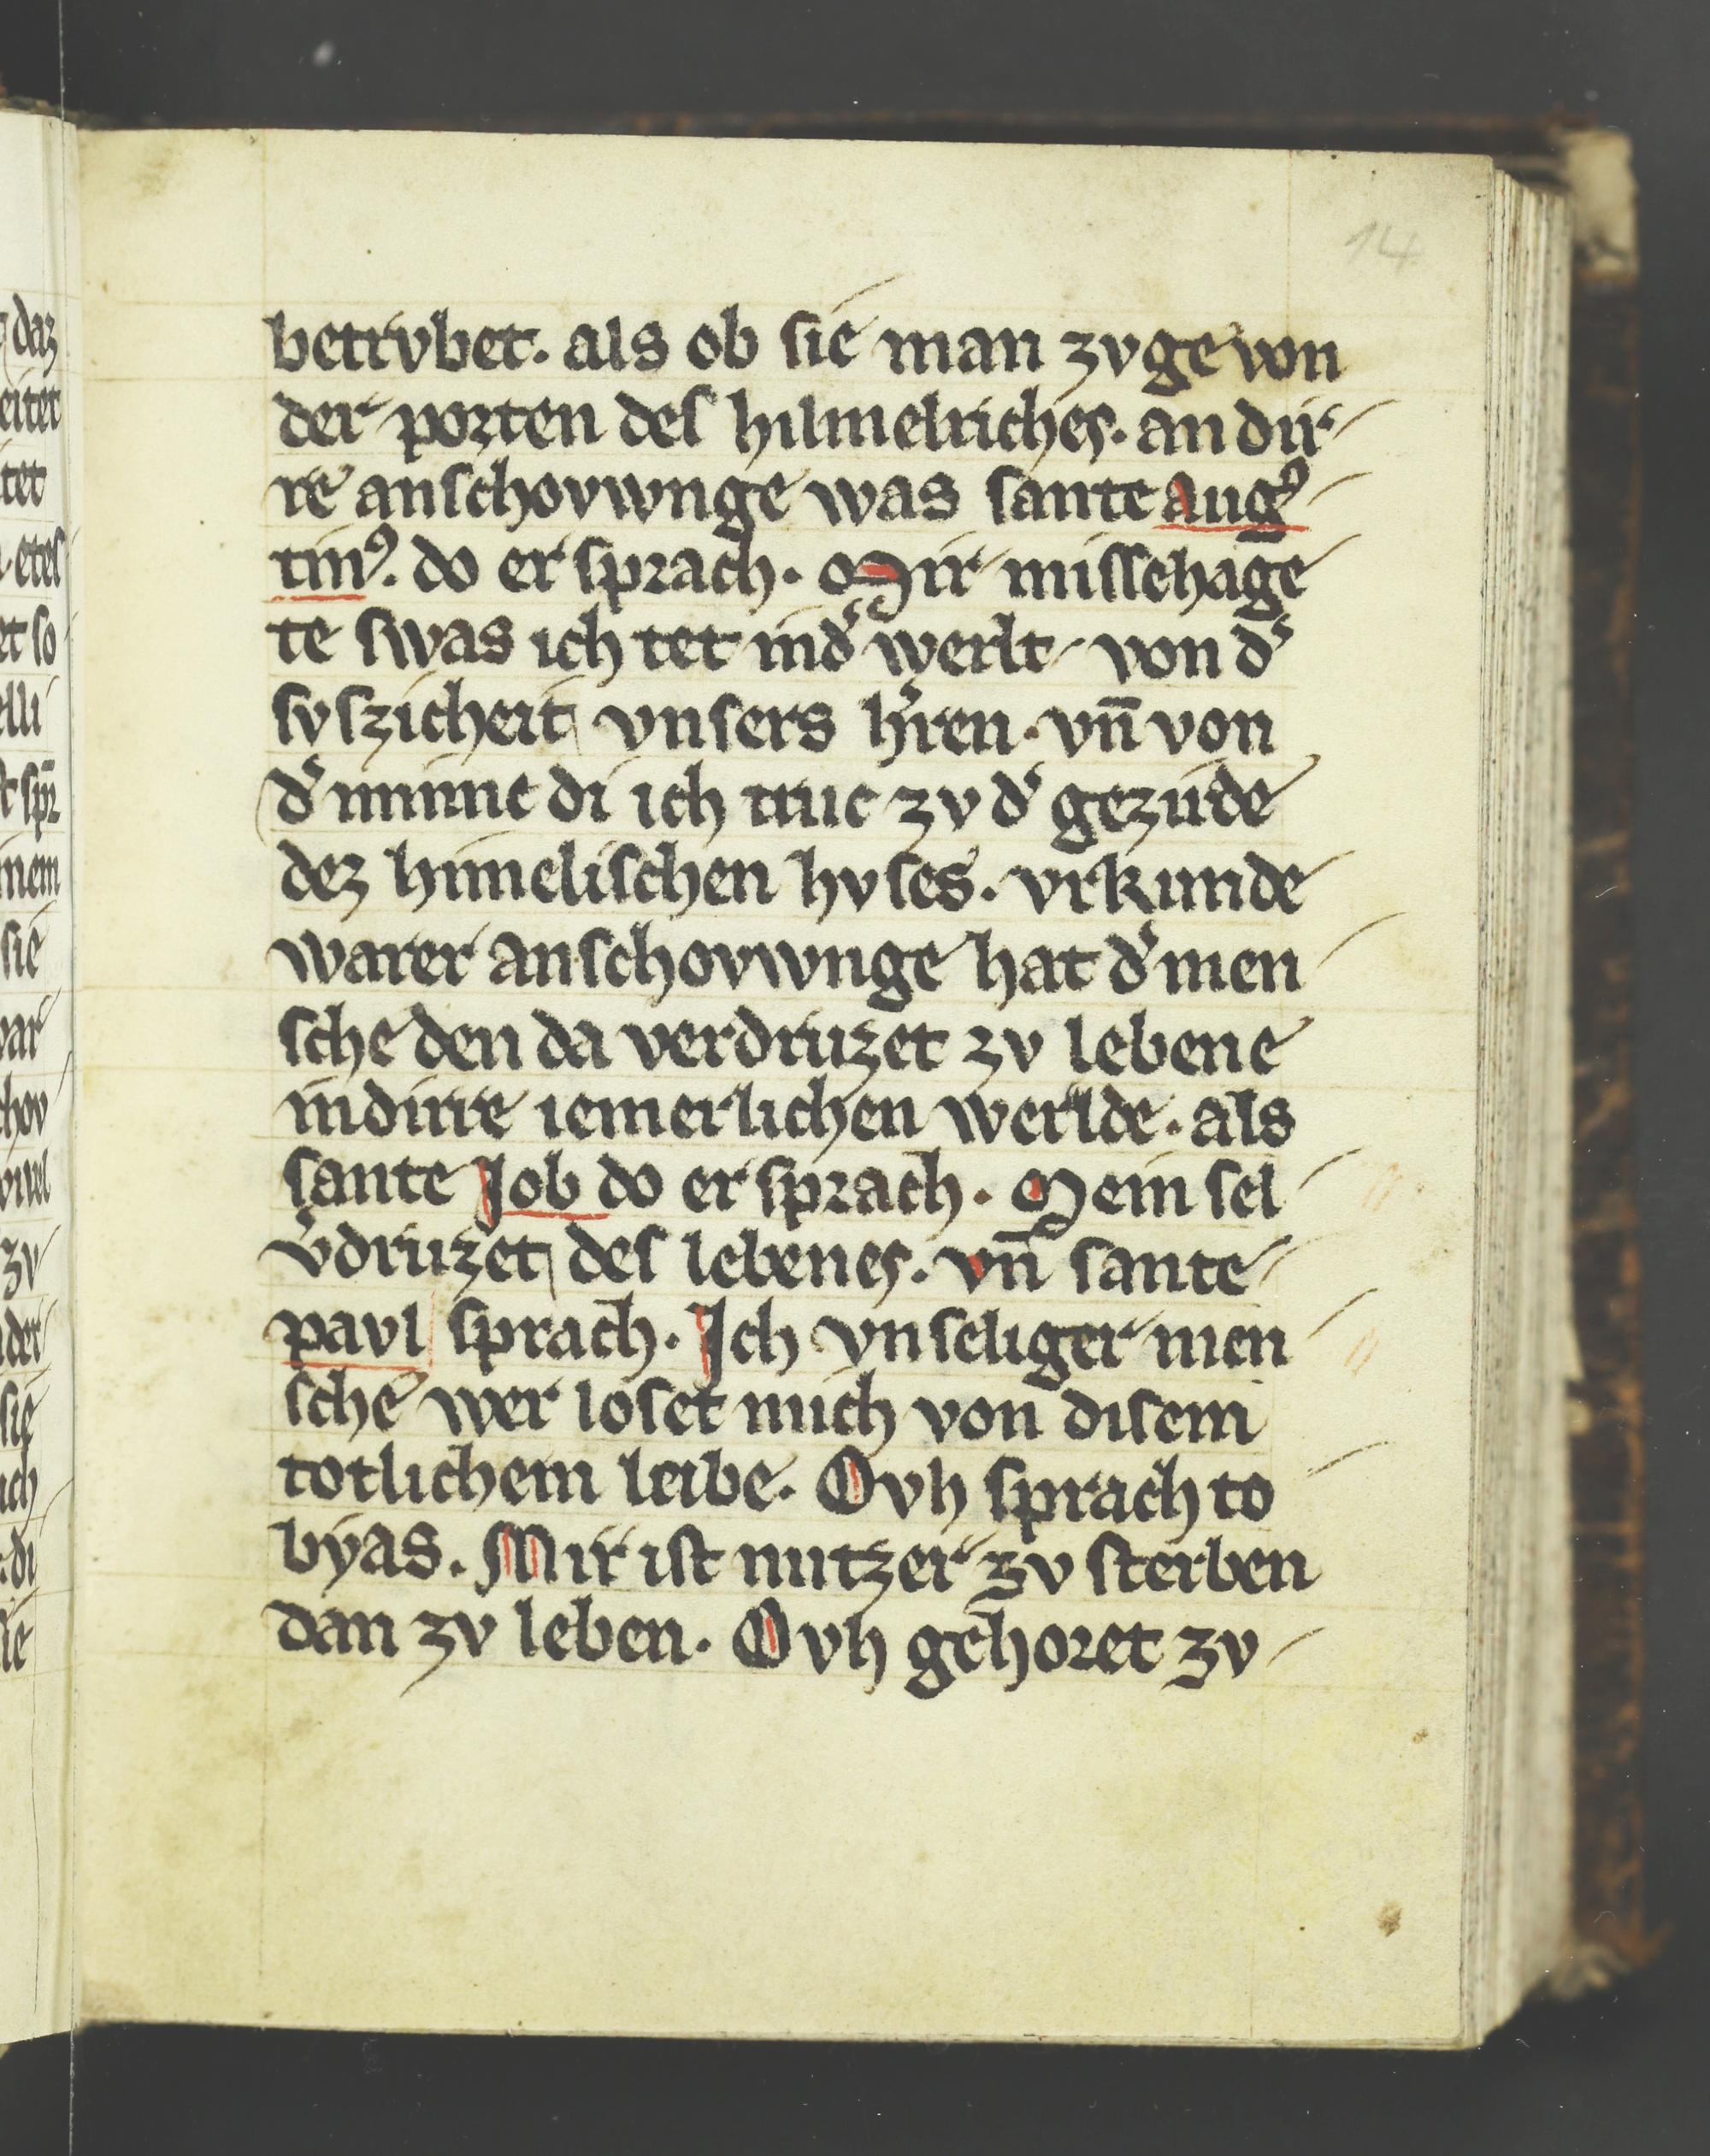 14
betrvbet. als ob sie man zvge von
der porten des hilmelriches. an dir
re anschovwnge was sante augꝰ
tinꝰ. do er sprach. Mir missehage
te swas ich tet in d͛ werlt von d͛
svszicheit vnsers h͛ren. vn̄ von
d͛ minne di ich truc zv d͛ gezirde
dez himelischen hvses. vrkunde
warer anschovwnge hat d͛ men
sche den da verdruzet zv lebene
in dirre iemerlichen werlde. als
sante Job do er sprach. Mein sel
v͛druzet des lebenes. vn̄ sante
pavl sprach. Ich vnseliger men
sche wer loset mich von disem
totlichem leibe. Ovh sprach to
byas. Mir ist nutzer zv sterben
dan zv leben. Ovh gehoret zv